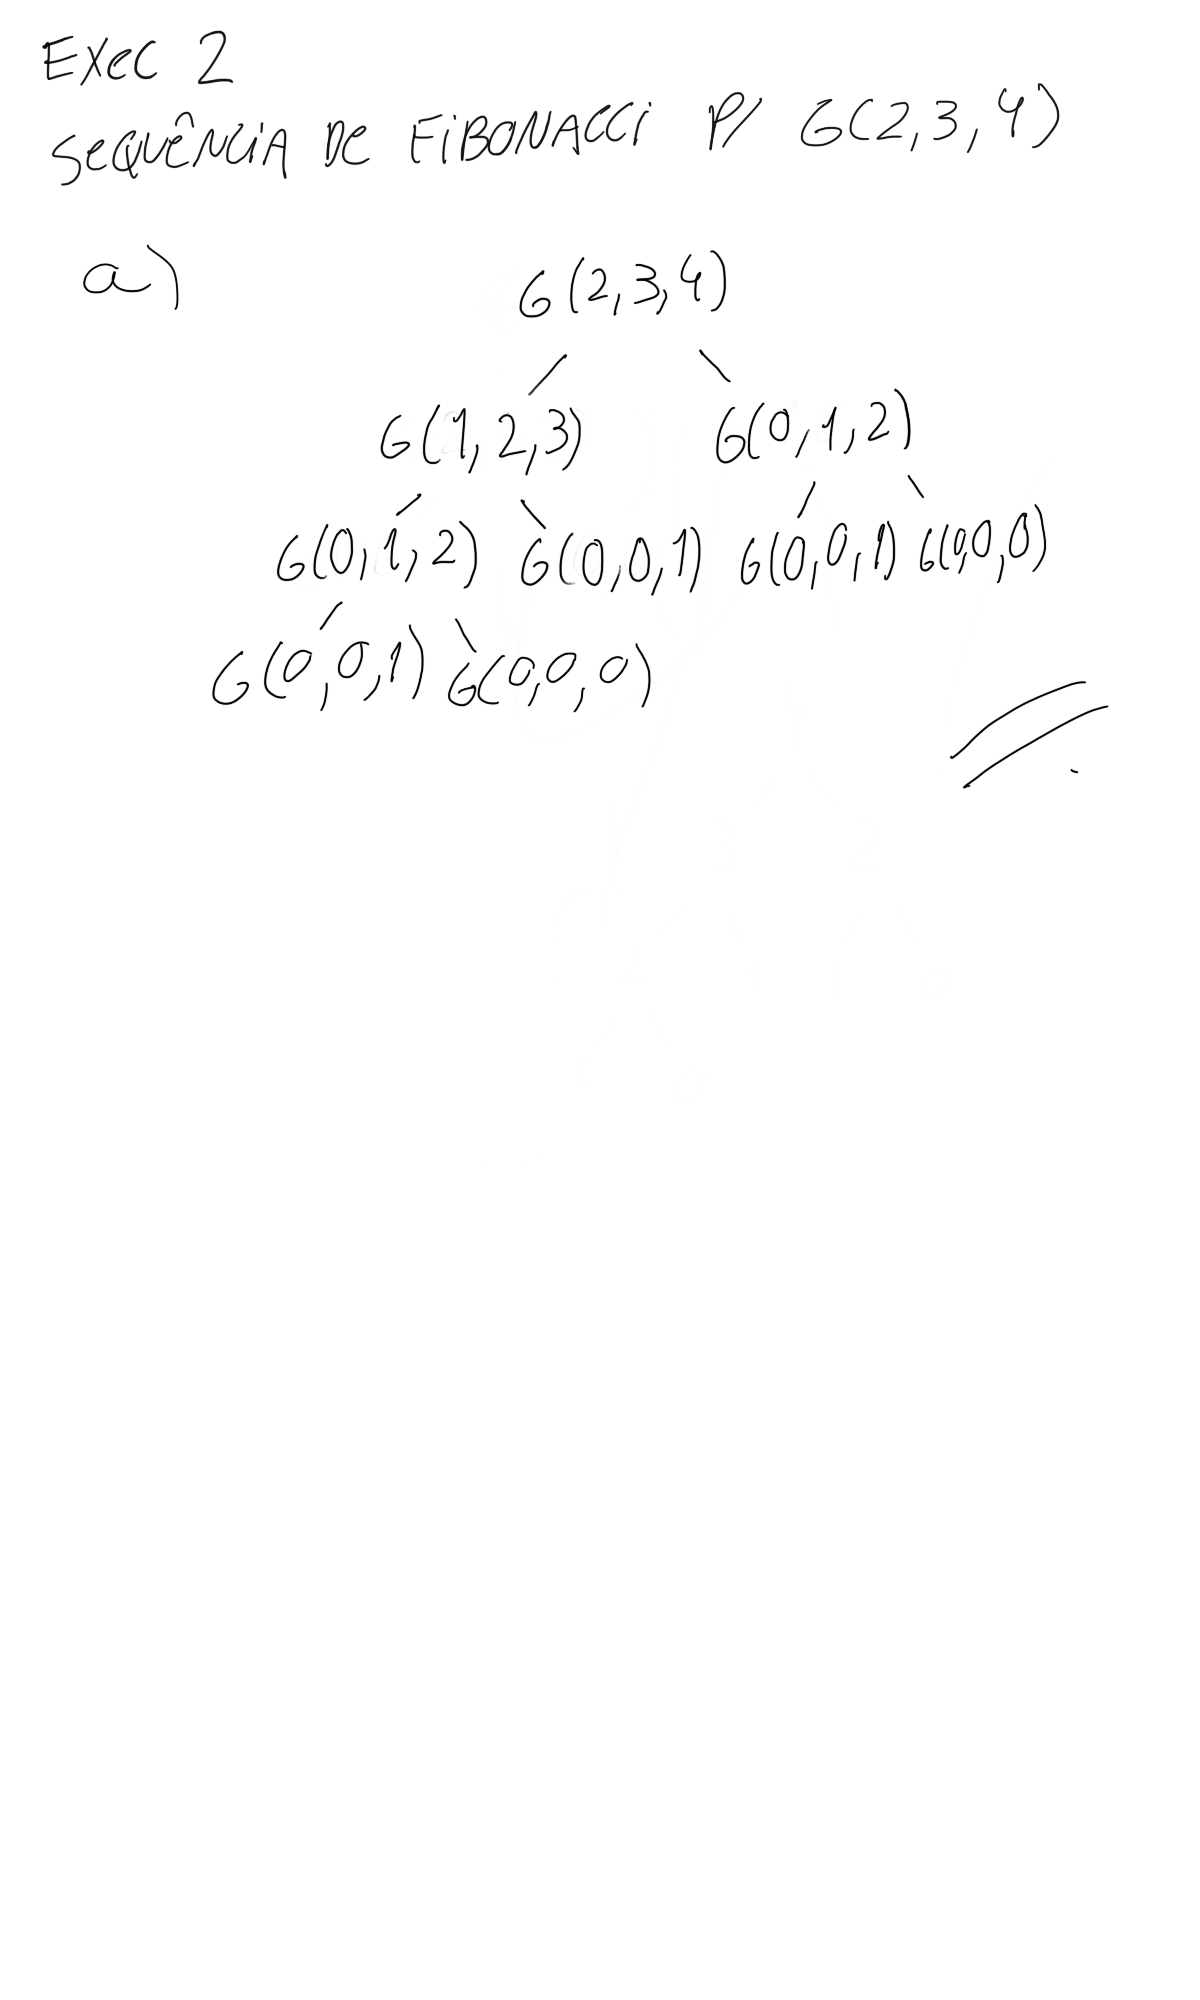 Exec 2
SEQUÊNCIA DE FIBONACCI P/ G(2,3,4)
a) G(2,3,4)
G(1,2,3) G(0,1,2)
G(0,1,2) G(0,0,1) G(0,0,1) G(0,0,0)
G(0,0,1) G(0,0,0)